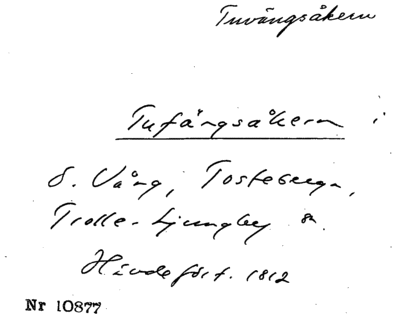 Tuvångsåkern
Tufångsåkern i
S. Vång, Tosteberga,
Trolle-Ljungby sn.
Hävdeört. 1812
Nr 10877